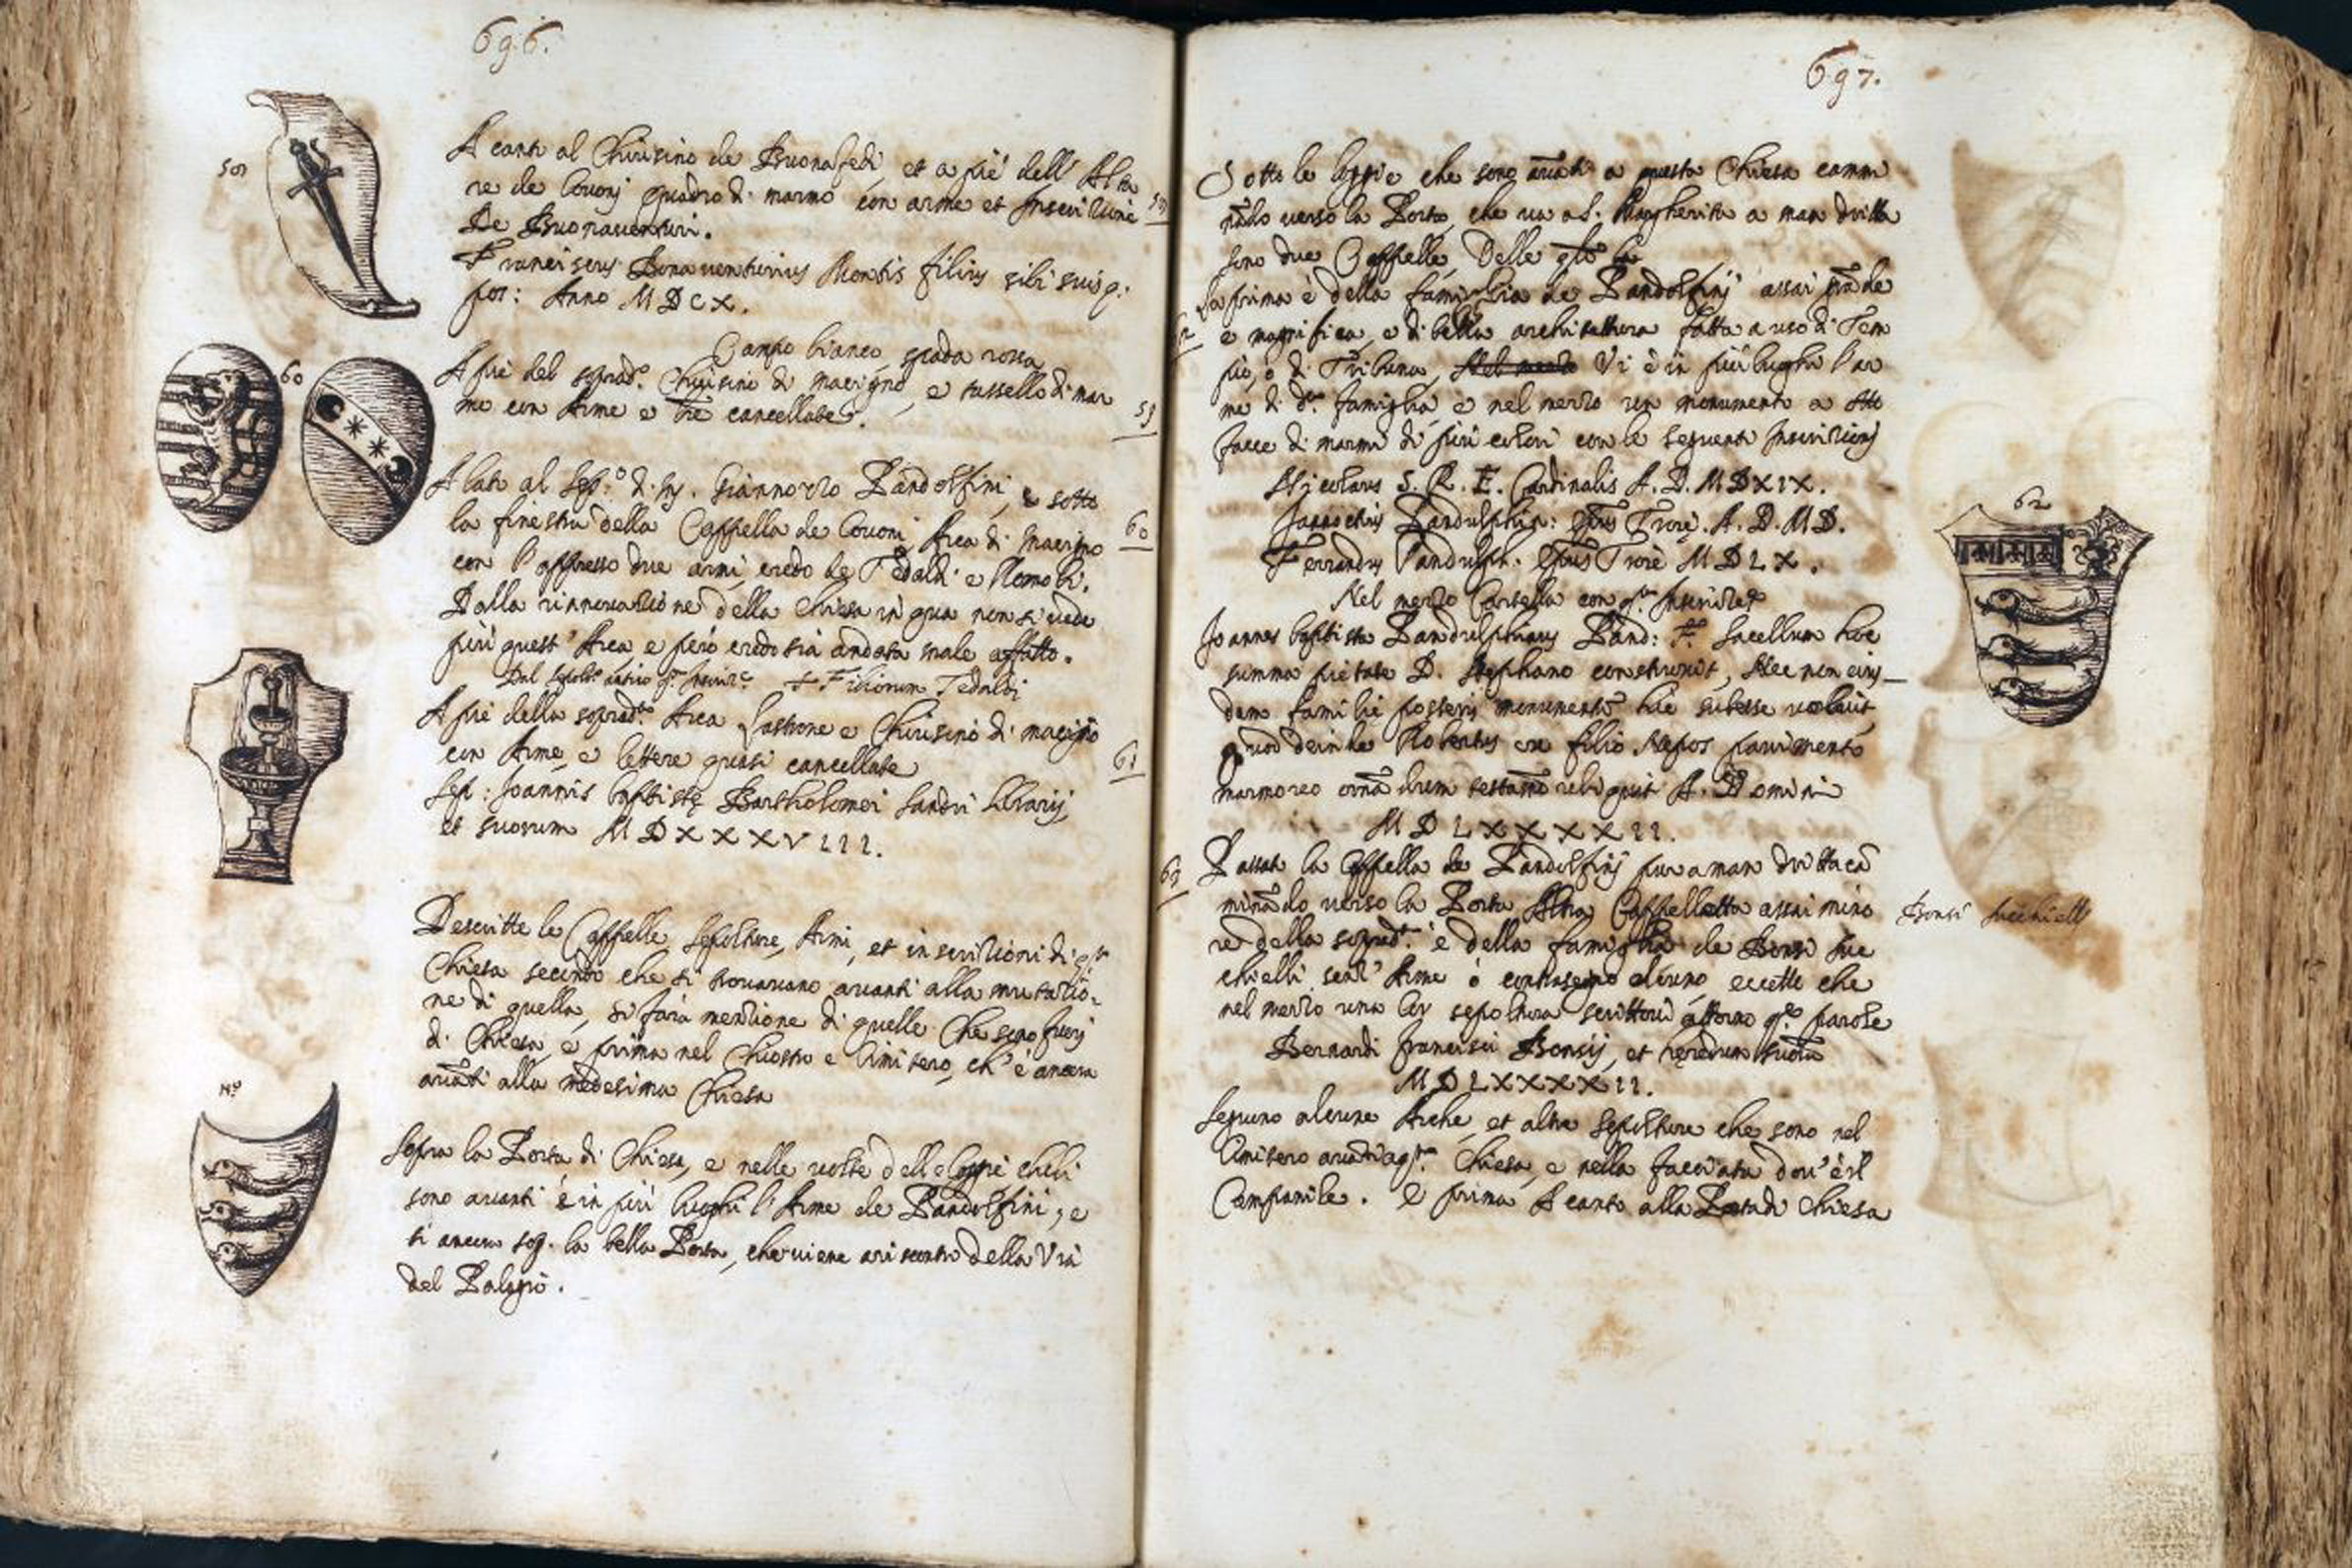 696.
A canto al Chiusino de Buonafedi, et a piè dell' Alta
re de Covonj quadro di marmo con arme et Inscritione
De Buonaventuri.
Franciscus Bonaventurius Montis filius sibi suisq.
pos: Anno MDCX.
Campo bianco, spada rossa
A piè del soprad.º Chiusino di macigno, e tassello di mar
mo con Arme e cancellate.
59
A lato al Sep.º di Giannozzo Pandolfini, e sotto
la finestra della Cappella de Covoni Arca di macigno
60
con l'appresso due armi, credo de Tedaldi e
Dalla rinnovatione della Chiesa in qua non si vede
più quest' Arca e però credo sia andata male affatto.
+ Filiorum Tedaldi
A piè della soprad.ª Arca Lastrone e Chiusino di macigno
con Arme, e lettere quasi cancellate
61
Sep: Joannis baptistę Bartholomei Sandri librarij
et suorum MDXXXVIII.
Descritte le Cappelle, Sepolture, Armi, et inscritioni di q.ta
Chiesa secondo che si trovavano avanti alla mutatio-
ne di quella, si farà mentione di quelle che sono fuorj
di Chiesa, e prima nel Chiostro e Cimitero, ch' è ancora
avāti alla medesima Chiesa
Sopra la Porta di Chiesa, e nelle volte delle loggie che li
sono avanti è in più luoghi l'Arme de Pandolfini, e
si ancora sop. la bella Porta, che viene a riscontro della Via
del Palagio.
60
697.
Sotto le loggie che sono avāti a questa Chiesa cammi
nādo verso la Porta, che va a S. Margherita a man dritta
sono due Cappelle, Delle
La prima è della famiglia de Pandolfinj assai grāde
e magnifica, e di bella architettura fatta a uso di Tem
pio, o di Tribuna, Vi è in più luoghi l'ar
me di d.ª famiglia, e nel mezzo un monumento a otto
facce di marmi di più colori con le seguenti Inscritionj
Nicolaus S. R. E. Cardinalis A. D. MDXIX.
Jannoctius Pandulphin: Ep̄us Troię. A. D. MD.
Ferrandus Pandulph. Ep̄us Troię MDLX.
Nel mezzo Cartella con q.ta Inscritiē
Joannes baptista Pandulphinus Pand: F. Sacellum hoc
summa pietate D. Stephano construxit, Nec non eius-
dem familię posteris monumentō hic subesse voluit,
quod deinde Robertus ex filio Nepos pavimento
marmoreo ornādum testamō reliquit A. Domini
MDLXXXXII.
63
Passata la Cappella de Pandolfinj pur a man dritta cā
minādo verso la Porta Altra Cappelletta assai mino
re della soprad.ª è della famiglia de Bonsi Suc
chielli senz' Arme ò contrasegno alcuno, eccetto che
nel mezzo una sepoltura scrittovi attorno q.te parole
Bernardi Francisci Bonsij, et heredum suorū
MDLXXXXII.
Seguono alcune Arche, et altre Sepolture che sono nel
Cimitero avāti a q.ta Chiesa, e nella facciata dov' è il
Campanile. E prima A canto alla Porta di Chiesa
62
Bonsi Succhielli